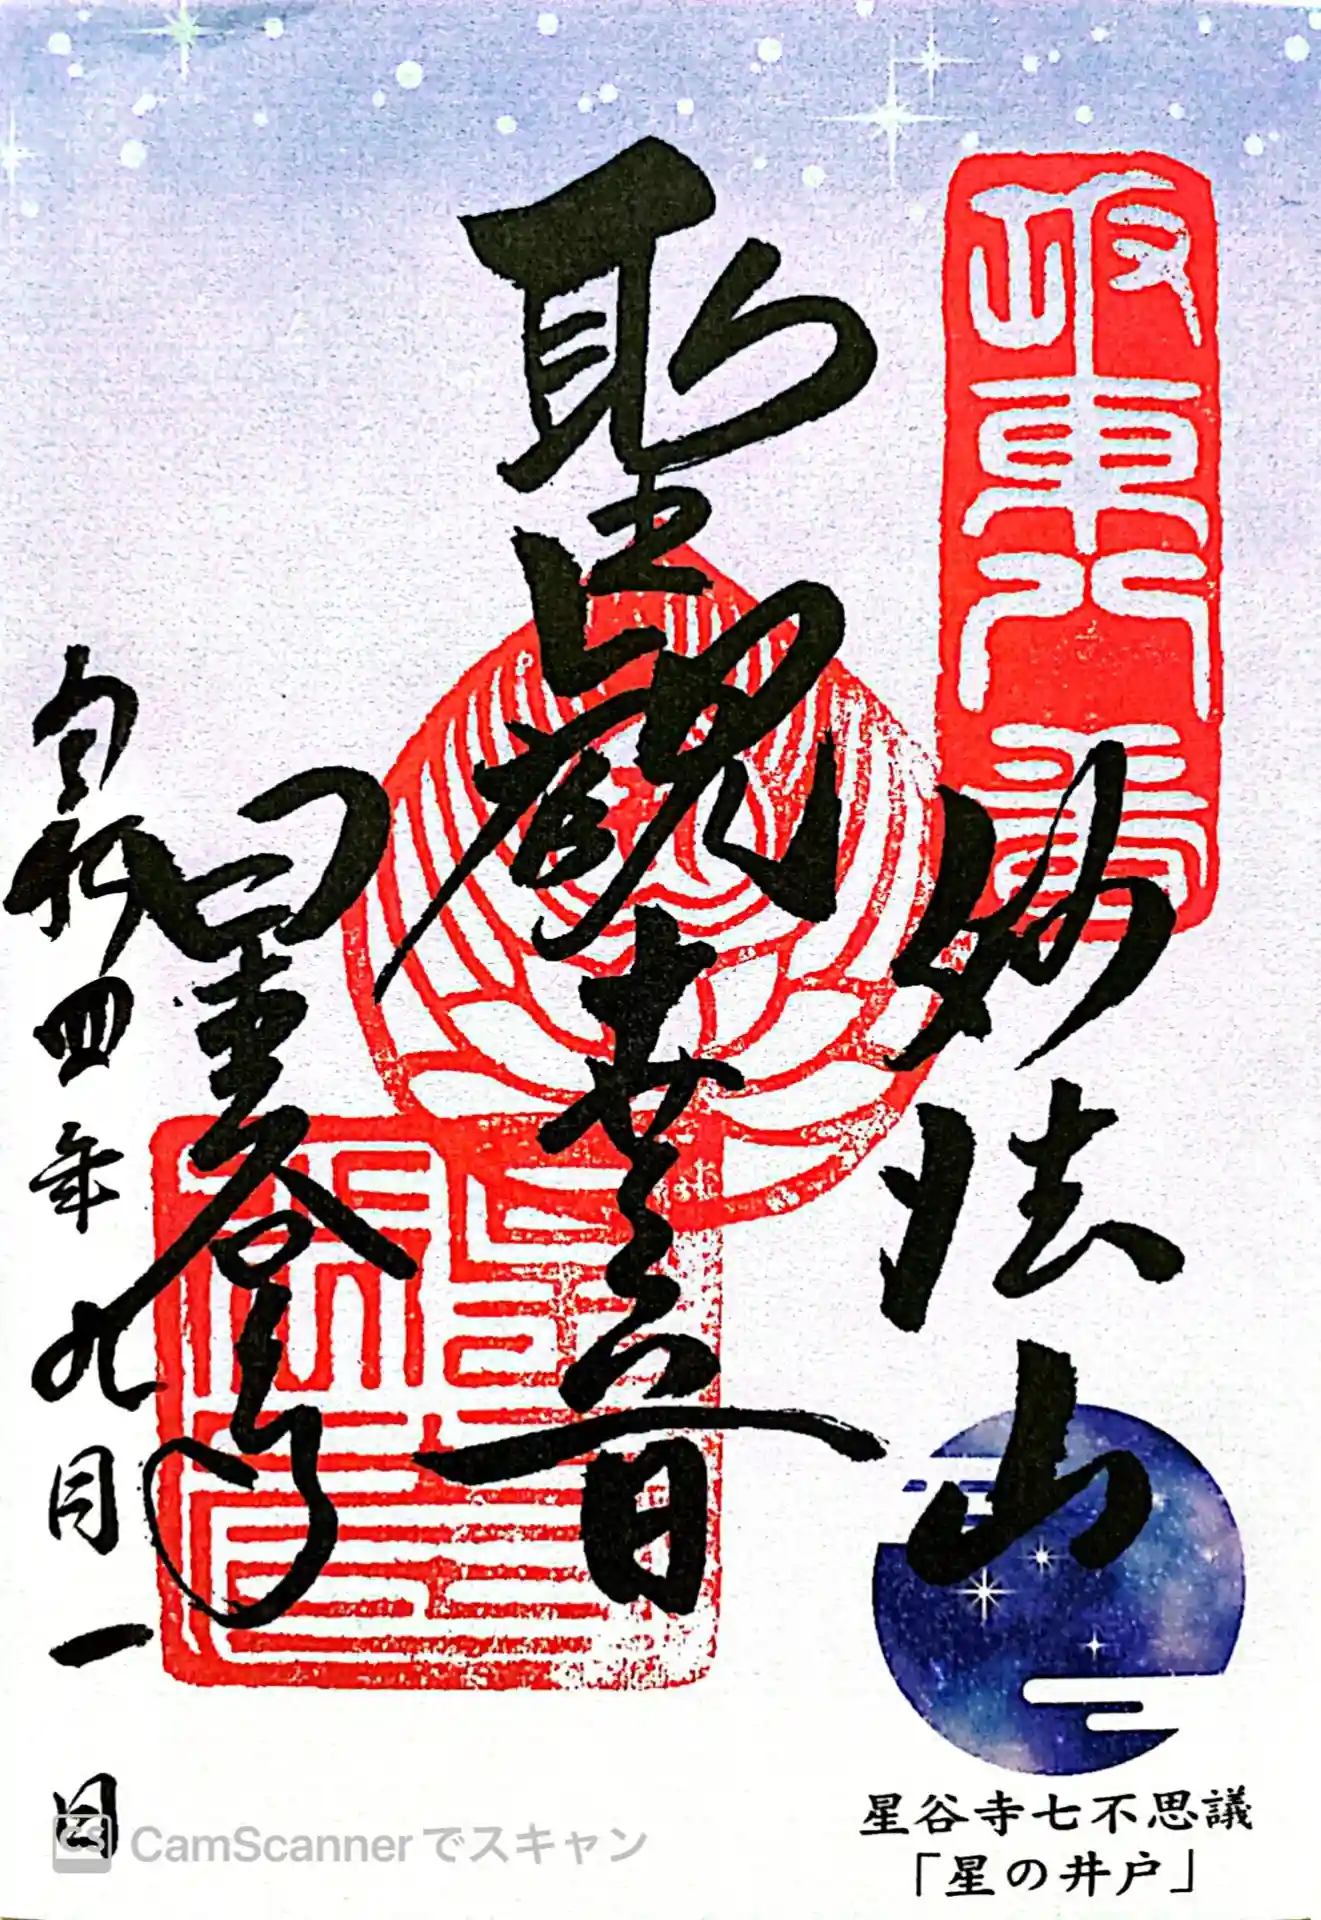 坂東八番
妙法山
聖観世音
星谷寺
令和四年九月一日
星谷寺七不思議
「星の井戸」
CS CamScannerでスキャン